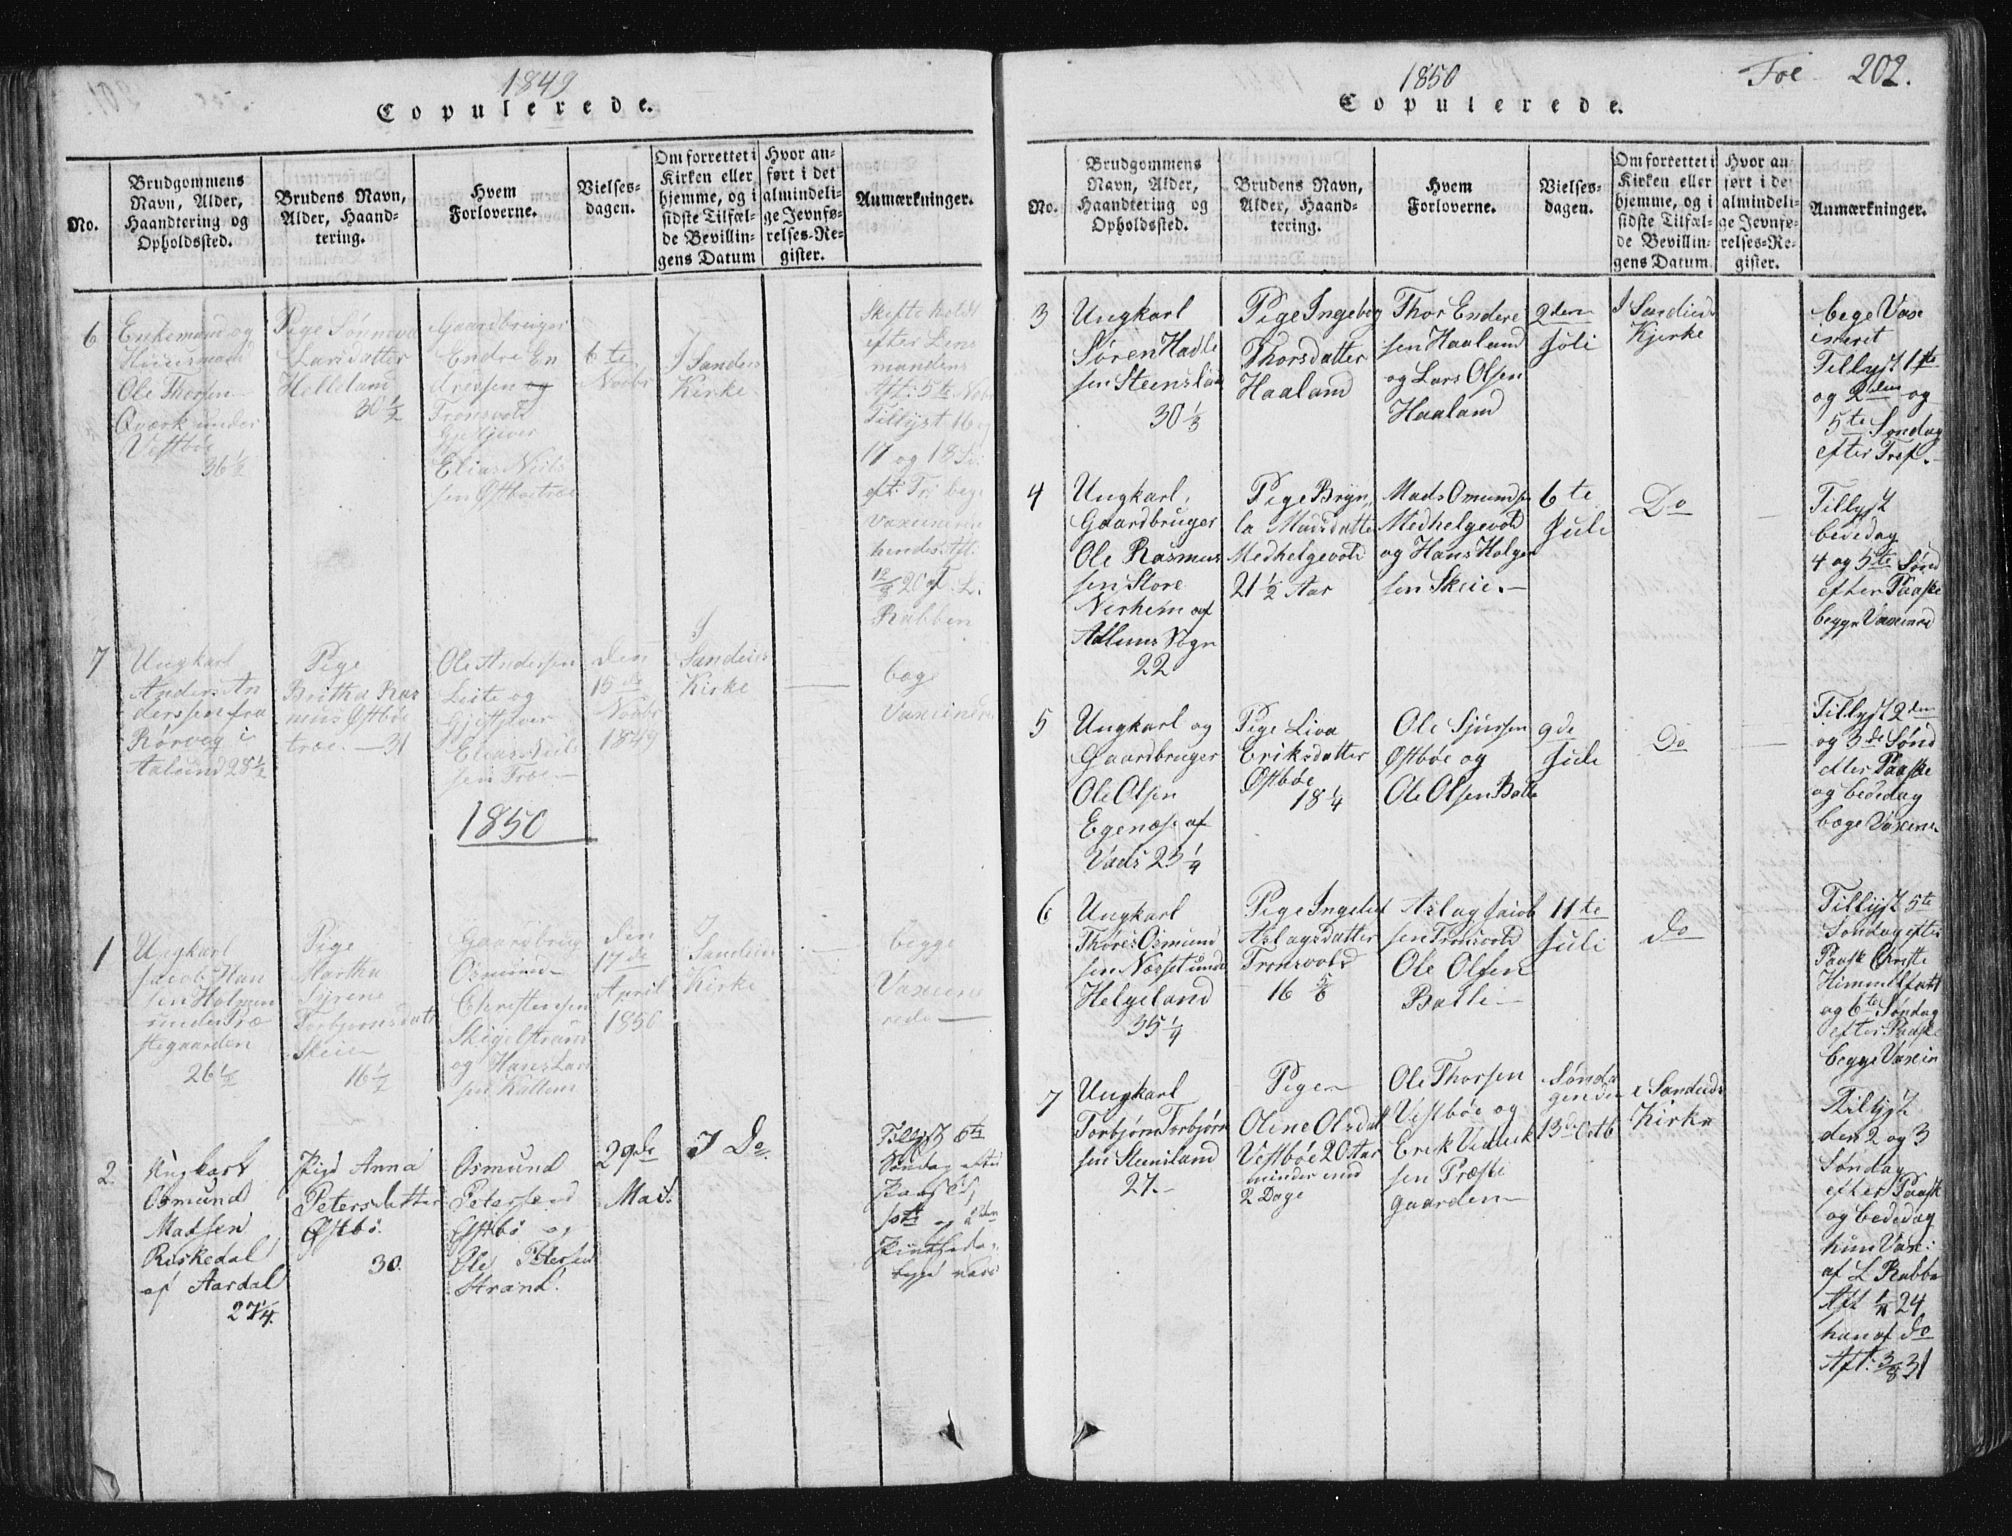 1849
Copulerede.
No.
Brudgommens
Navn, Alder,
Haandtering og
Opholdssted.
Brudens Navn,
Alder, Haand-
tering.
Hvem
Forloverne.
Vielses-
dagen.
Om forrettet i
Kirken eller
hjemme, og i
sidste Tilfæl-
de Bevillin-
gens Datum
Hvor an-
ført i det
almindeli-
ge Jevnfø-
relses-Re-
gister.
Anmærkninger.
6
Enkemand og
Huusmand
Ole Thorsen
Qværk under
Vestbøe
36 1/2
Pige
Larsdatter
Helleland
30 1/2
Gaardbruger
Endre En
dresen og
Tronsvold
Gjestgiver
Elias Niels
sen Østbøetroe
6te
Novbr
I Sandeids
Kirke
Skifte holdt
efter Lens
mandens
Aft: 5te Novbr
Tillyst 16
17 og 18 Sø
eft: Tr: bege
vaxinerte
hendes Aft:
12/8 20 af L.
Rabben
7
Ungkarl
Anders An
derssen fra
Rørveg i
Aalsund 28 1/2
Pige
Britha Ras
mus Østbøe
troe. — 31
Ole Andersen
Leite og
Gjestgiver
Elias Niels
sen Troe —
den
15de
Novbr
1849
I
Sandeids
Kirke
bege
Vaxinere
1850
1
Ungkarl
Jacob Han
sen Holmen
under Præ
stegaarden
26 1/2
Pige
Martha
Syrene
Torbjørnsdatr
Skeie
16 1/2
Gaardbrug
Osmund
Christensen
og Hans Lar
sen Kallem
den
17de
April
1850
I
Sandeids
Kirke
begge
Vaxine
rede —
2.
Ungkarl
Osmund
Madsen
Riskedal
af Aardal
27 1/4.
Pige Anna
Petersdatter
Østbø.
30.
Osmund
Petersen
Østbø og
Ole Petersen
Strand.
29de
Mai.
I Do.
Tillyst 6te
Søndag efter
Paaske,
1ste og 2den
Pintsedag,
begge vacc
1850
Foe 202.
Copulerede.
No.
Brudgommens
Navn, Alder,
Haandtering og
Opholdssted.
Brudens Navn,
Alder, Haand-
tering.
Hvem
Forloverne.
Vielses-
dagen.
Om forrettet i
Kirken eller
hjemme, og i
sidste Tilfæl-
de Bevillin-
gens Datum.
Hvor an
ført i de
almindeli-
ge Jevnfø-
relses-Re-
gister.
Anmærkninger.
3
Ungkarl
Søren Hadle
sen Steensland
30 1/3
Pige Ingeberg
Thorsdatter
Haaland
Thor Endere
sen Haaland
og Lars Olsen
Haaland
2den
Juli
I Sandeids
Kjerke
bege Vax
ineret
Tillyst 1ste
og 2den og
5te Søndag
efter Tref.
4
Ungkarl,
Gaardbruger
Ole Rasmus
sen Store
Nerheim af
Atlums Sogn
22
Pige Bryn
la Madsdatter
Medhelgevold
21 1/2 Aar
Mads Omundsen
Medhelgevold
og Hans Holgu
sen Skeie. —
6te
Juli
Do
Tillyst
bededag
4 og 5te Sønd
efter Paaske
begge Vaxinerd
5
Ungkarl og
Gaardbruger
Ole Olsen
Egenæs af
Vads 23 1/4
Pige Liva
Eriksdatter
Østbøe
18 1/4
Ole Sjursen
Østbøe og
Ole Olsen Balle
9de
Juli
Do
Tillyst 2den
og 3de Sønd
efter Paaske
og bededag
bege Vaxine
6
Ungkarl
Thores Osmund
sen Næsset unde
Helgeland
35 1/4
Pige Ingeleif
Aslagsdatter
Tronsvold
16 5/6
Aslag Jacob
sen Tronsvold
Ole Olsen
Balle —
11te
Juli
Do
Tillyst 5te
Søndag efter
Paask Christe
Himmelfart
og 6te Søndag
efter Paaske
begge Vaxin
7
Ungkarl
Torbjørn Torbjørn
sen Steensland
27. —
Pige
Oline Olsdat
Vestbøe 20 Aar
minder end
2 Dage
Ole Thorsen
Vestbøe og
Erik Videik
sen Præste
gaarden —
Sønda
gen den
13de Octb
i Sandeids
Kirke
Tillyst
den 2 og 3
Søndag
efter Paask
og bededag
hun Vax:
af L Rabbe
Aft 24
han af do
Aft: 3/8 31